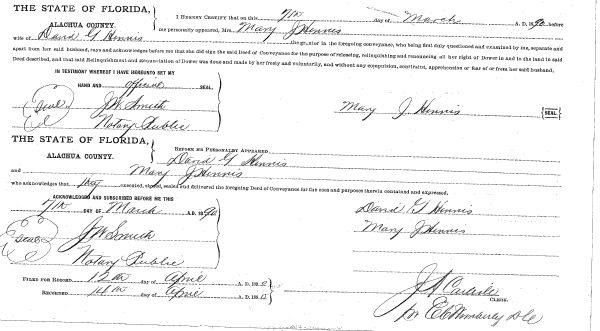 THE STATE OF FLORIDA,
ALACHUA COUNTY.
I HEREBY CERTIFY that on this 7th day of March A. D. 1890 before
me personally appeared, Mrs. Mary J Hennis
wife of David G Hennis the grantor in the foregoing conveyance, who being first duly questioned and examined by me, separate and
apart from her said husband, says and acknowledges before me that she did sign the said Deed of Conveyance for the purpose of releasing, relinquishing and renouncing all her right of Dower in and to the land in said
Deed described, and that said Relinquishment and Renunciation of Dower was done and made by her freely and voluntarily, and without any compulsion, constraint, apprehension or fear of or from her said husband.
IN TESTIMONY WHEREOF I HAVE HEREUNTO SET MY
HAND AND official SEAL.
Seal J W Smith
Mary J Hennis SEAL.
Notary Public
THE STATE OF FLORIDA,
ALACHUA COUNTY.
BEFORE ME PERSONALLY APPEARED
David G Hennis
and Mary J Hennis
who acknowledges that they executed, signed, sealed and delivered the foregoing Deed of Conveyance for the uses and purposes therein contained and expressed.
ACKNOWLEDGED AND SUBSCRIBED BEFORE ME THIS
7th DAY OF March A.D. 1890
David G Hennis
Mary J Hennis
Seal J W Smith
Notary Public
FILED FOR RECORD 12th day of April A. D. 188
RECORDED day of April A. D. 188
J A Carlisle CLERK.